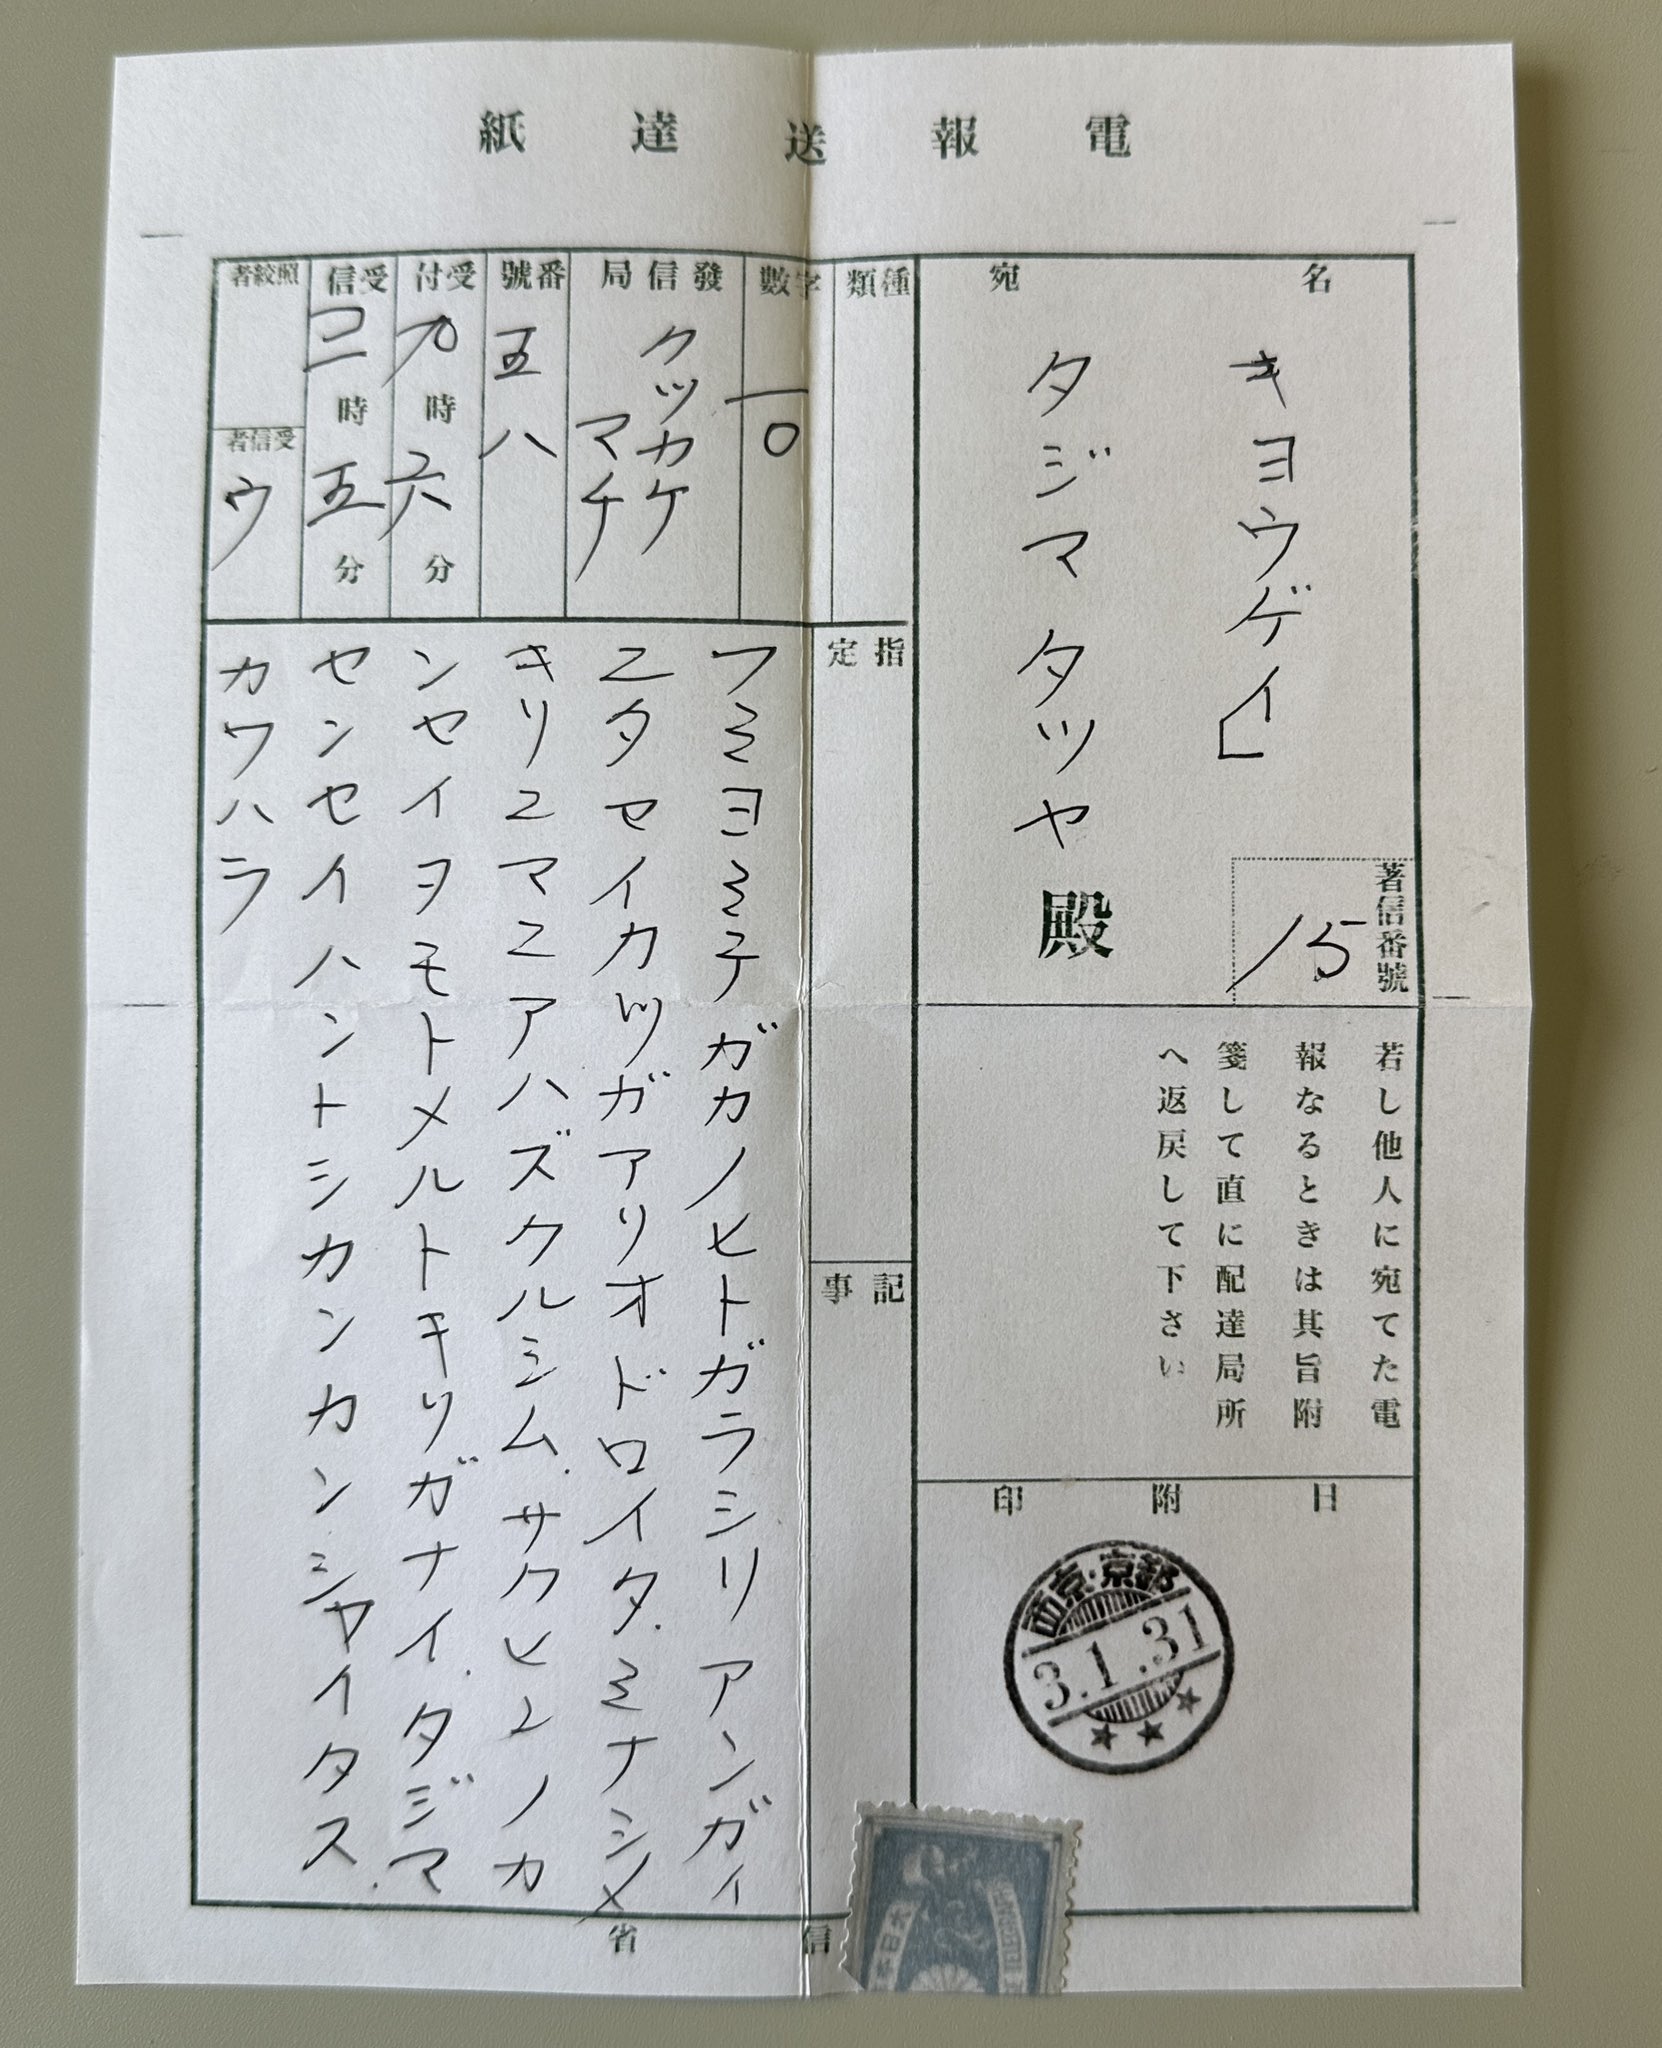 電報送達紙
名宛
キヨウゲイ」
タジマタツヤ殿
著信番號
15
若し他人に宛てた電
報なるときは其旨附
箋して直に配達局所
へ返戻して下さい
日附印
西京・京都
3.1.31
種類
字數
一〇
發信局
クツカケ
マチ
番號
五八
受付
九時六分
受信
時五分
照絞者
受信者
ウ
指定
記事
フミヨミテガカノヒトガラシリアンガイ
ニタセイカツガアリオドロイタ.ミナシメ
キリニマニアハズクルシム.サクヒンノカ
ンセイヲモトメルトキリガナイ.タジマ
センセイハントシカンカンシヤイタス.
カワハラ
信省